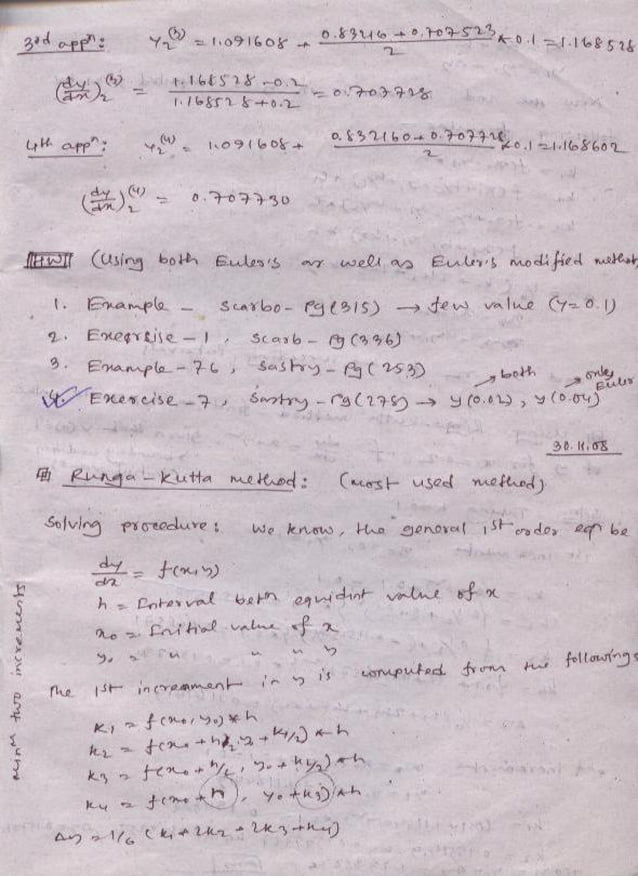 3rd appn: y2(3) = 1.091608 + (0.83216 + 0.707523)/2 * 0.1 = 1.168528
(dy/dx)2(3) = (1.168528 - 0.2)/(1.168528 + 0.2) = 0.707728
4th appn: y2(4) = 1.091608 + (0.832160 + 0.707728)/2 * 0.1 = 1.168602
(dy/dx)2(4) = 0.707730
HW (Using both Euler's as well as Euler's modified method
1. Example - Scarbo - Pg(315) → few value (y=0.1)
2. Exercise - 1, Scarb - Pg(336)
3. Example - 76, Sastry - Pg(253)
both only Euler
4. Exercise - 7, Sastry - Pg(278) → y(0.02), y(0.04)
30.11.08
Runga-Kutta method: (most used method)
Solving procedure: We know, the general 1st order eqn be
dy/dx = f(x,y)
h = Interval betn equidint value of x
x0 = Initial value of x
y0 = " " " y
The 1st increament in y is computed from the followings
k1 = f(x0, y0) * h
k2 = f(x0 + h/2, y0 + k1/2) * h
k3 = f(x0 + h/2, y0 + k2/2) * h
k4 = f(x0 + h, y0 + k3) * h
Δy = 1/6 (k1 + 2k2 + 2k3 + k4)
two increments